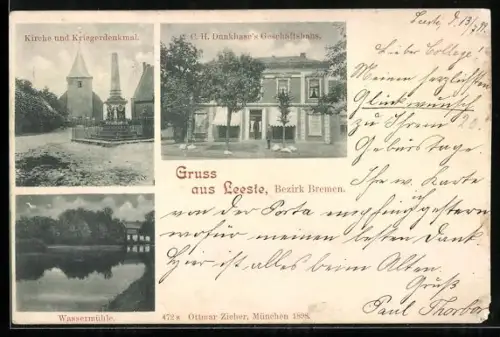 Kirche und Kriegerdenkmal.
C. H. Dunkhase's Geschäftshaus.
Gruss
aus Leeste, Bezirk Bremen.
Wassermühle.
472 s Ottmar Zieher, München 1898.
Leeste, d. 13/
Lieber College!
Meinen herzlichsten
Glückwunsch
zu Ihrem
Geburtstage.
Ihre w. Karte
von der Porta empfing ich gestern
wofür meinen besten Dank
Hier ist alles beim Alten.
Gruß
Paul